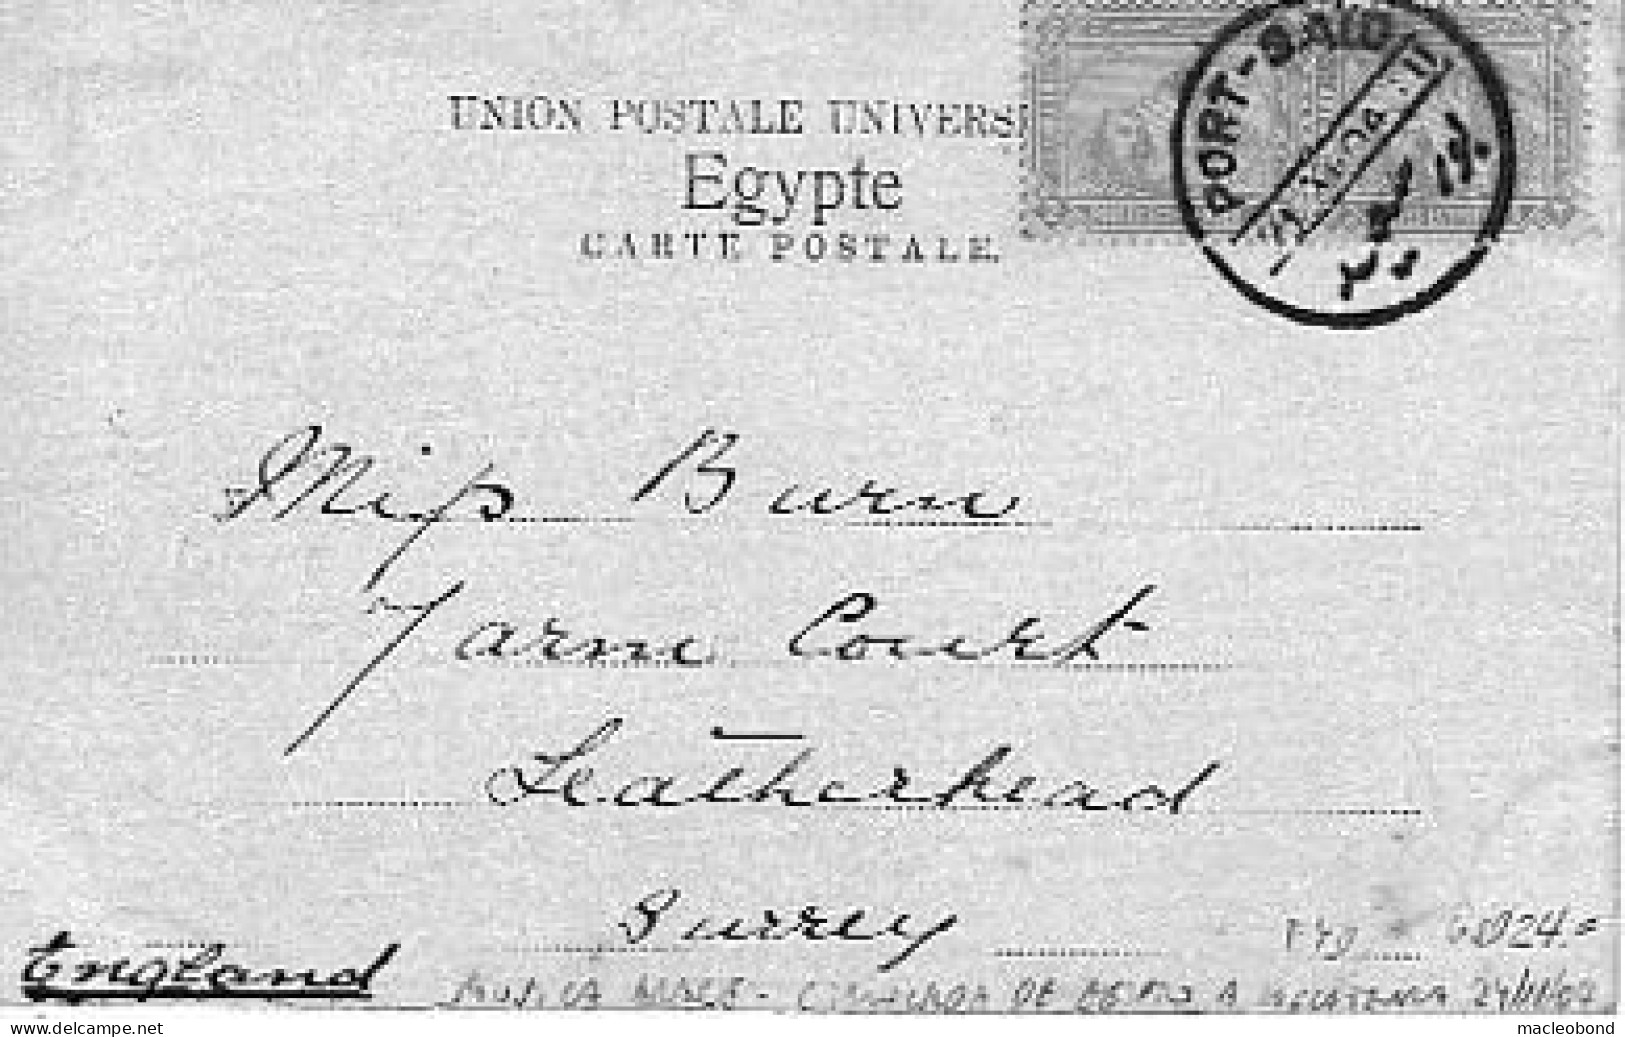 UNION POSTALE UNIVERS
Egypte
CARTE POSTALE.
PORT-SAID
Miss Burn
Yarm Court
Leatherhead
Surrey
England
macleobond.eu/delcampe.site
macleobond